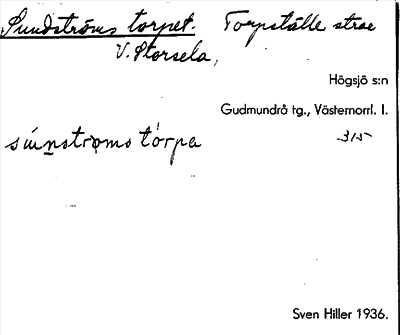 Sundströms torpet. Torpställe strax
V. Storsela,
Högsjö s:n
Gudmundrå tg., Västernorrl. l.
315
súnstroms tórpa
Sven Hiller 1936.